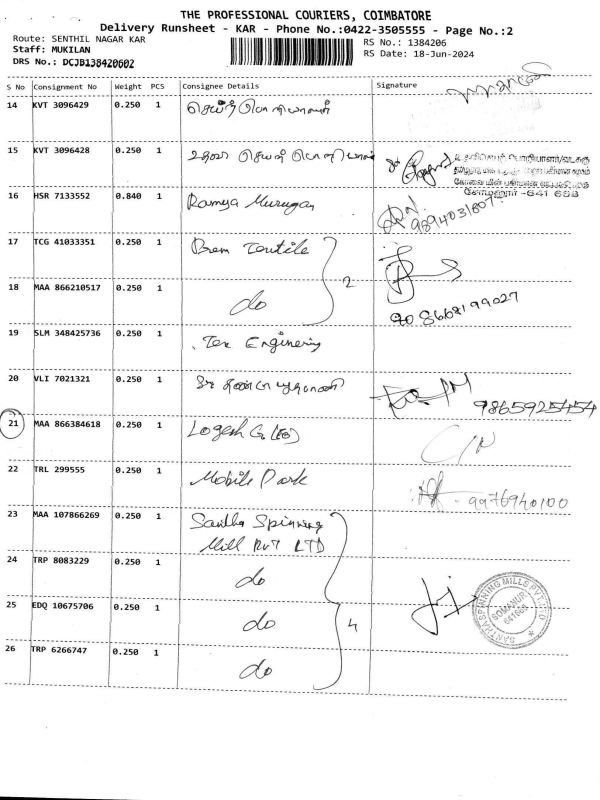 THE PROFESSIONAL COURIERS, COIMBATORE
Delivery Runsheet - KAR - Phone No.:0422-3505555 - Page No.:2
Route: SENTHIL NAGAR KAR
RS No.: 1384206
Staff: MUKILAN
RS Date: 18-Jun-2024
DRS No.: DCJB138420602
S No Consignment No Weight PCS Consignee Details Signature
14 KVT 3096429 0.250 1
15 KVT 3096428 0.250 1
16 HSR 7133552 0.840 1 Ramya Murugan
9894031807
17 TCG 41033351 0.250 1 Prem Textile
2
18 MAA 866210517 0.250 1 do
8668199027
19 SLM 348425736 0.250 1 Tex Enginering
20 VLI 7021321 0.250 1
9865925454
21 MAA 866384618 0.250 1 Logesh G
22 TRL 299555 0.250 1 Mobile Park
9976940100
23 MAA 107866269 0.250 1 Santha Spinning
Mill PVT LTD
24 TRP 8083229 0.250 1 do
25 EDQ 10675706 0.250 1 do
4
SANTHA SPINNING MILLS PVT LTD
SOMANUR
641668
26 TRP 6266747 0.250 1 do